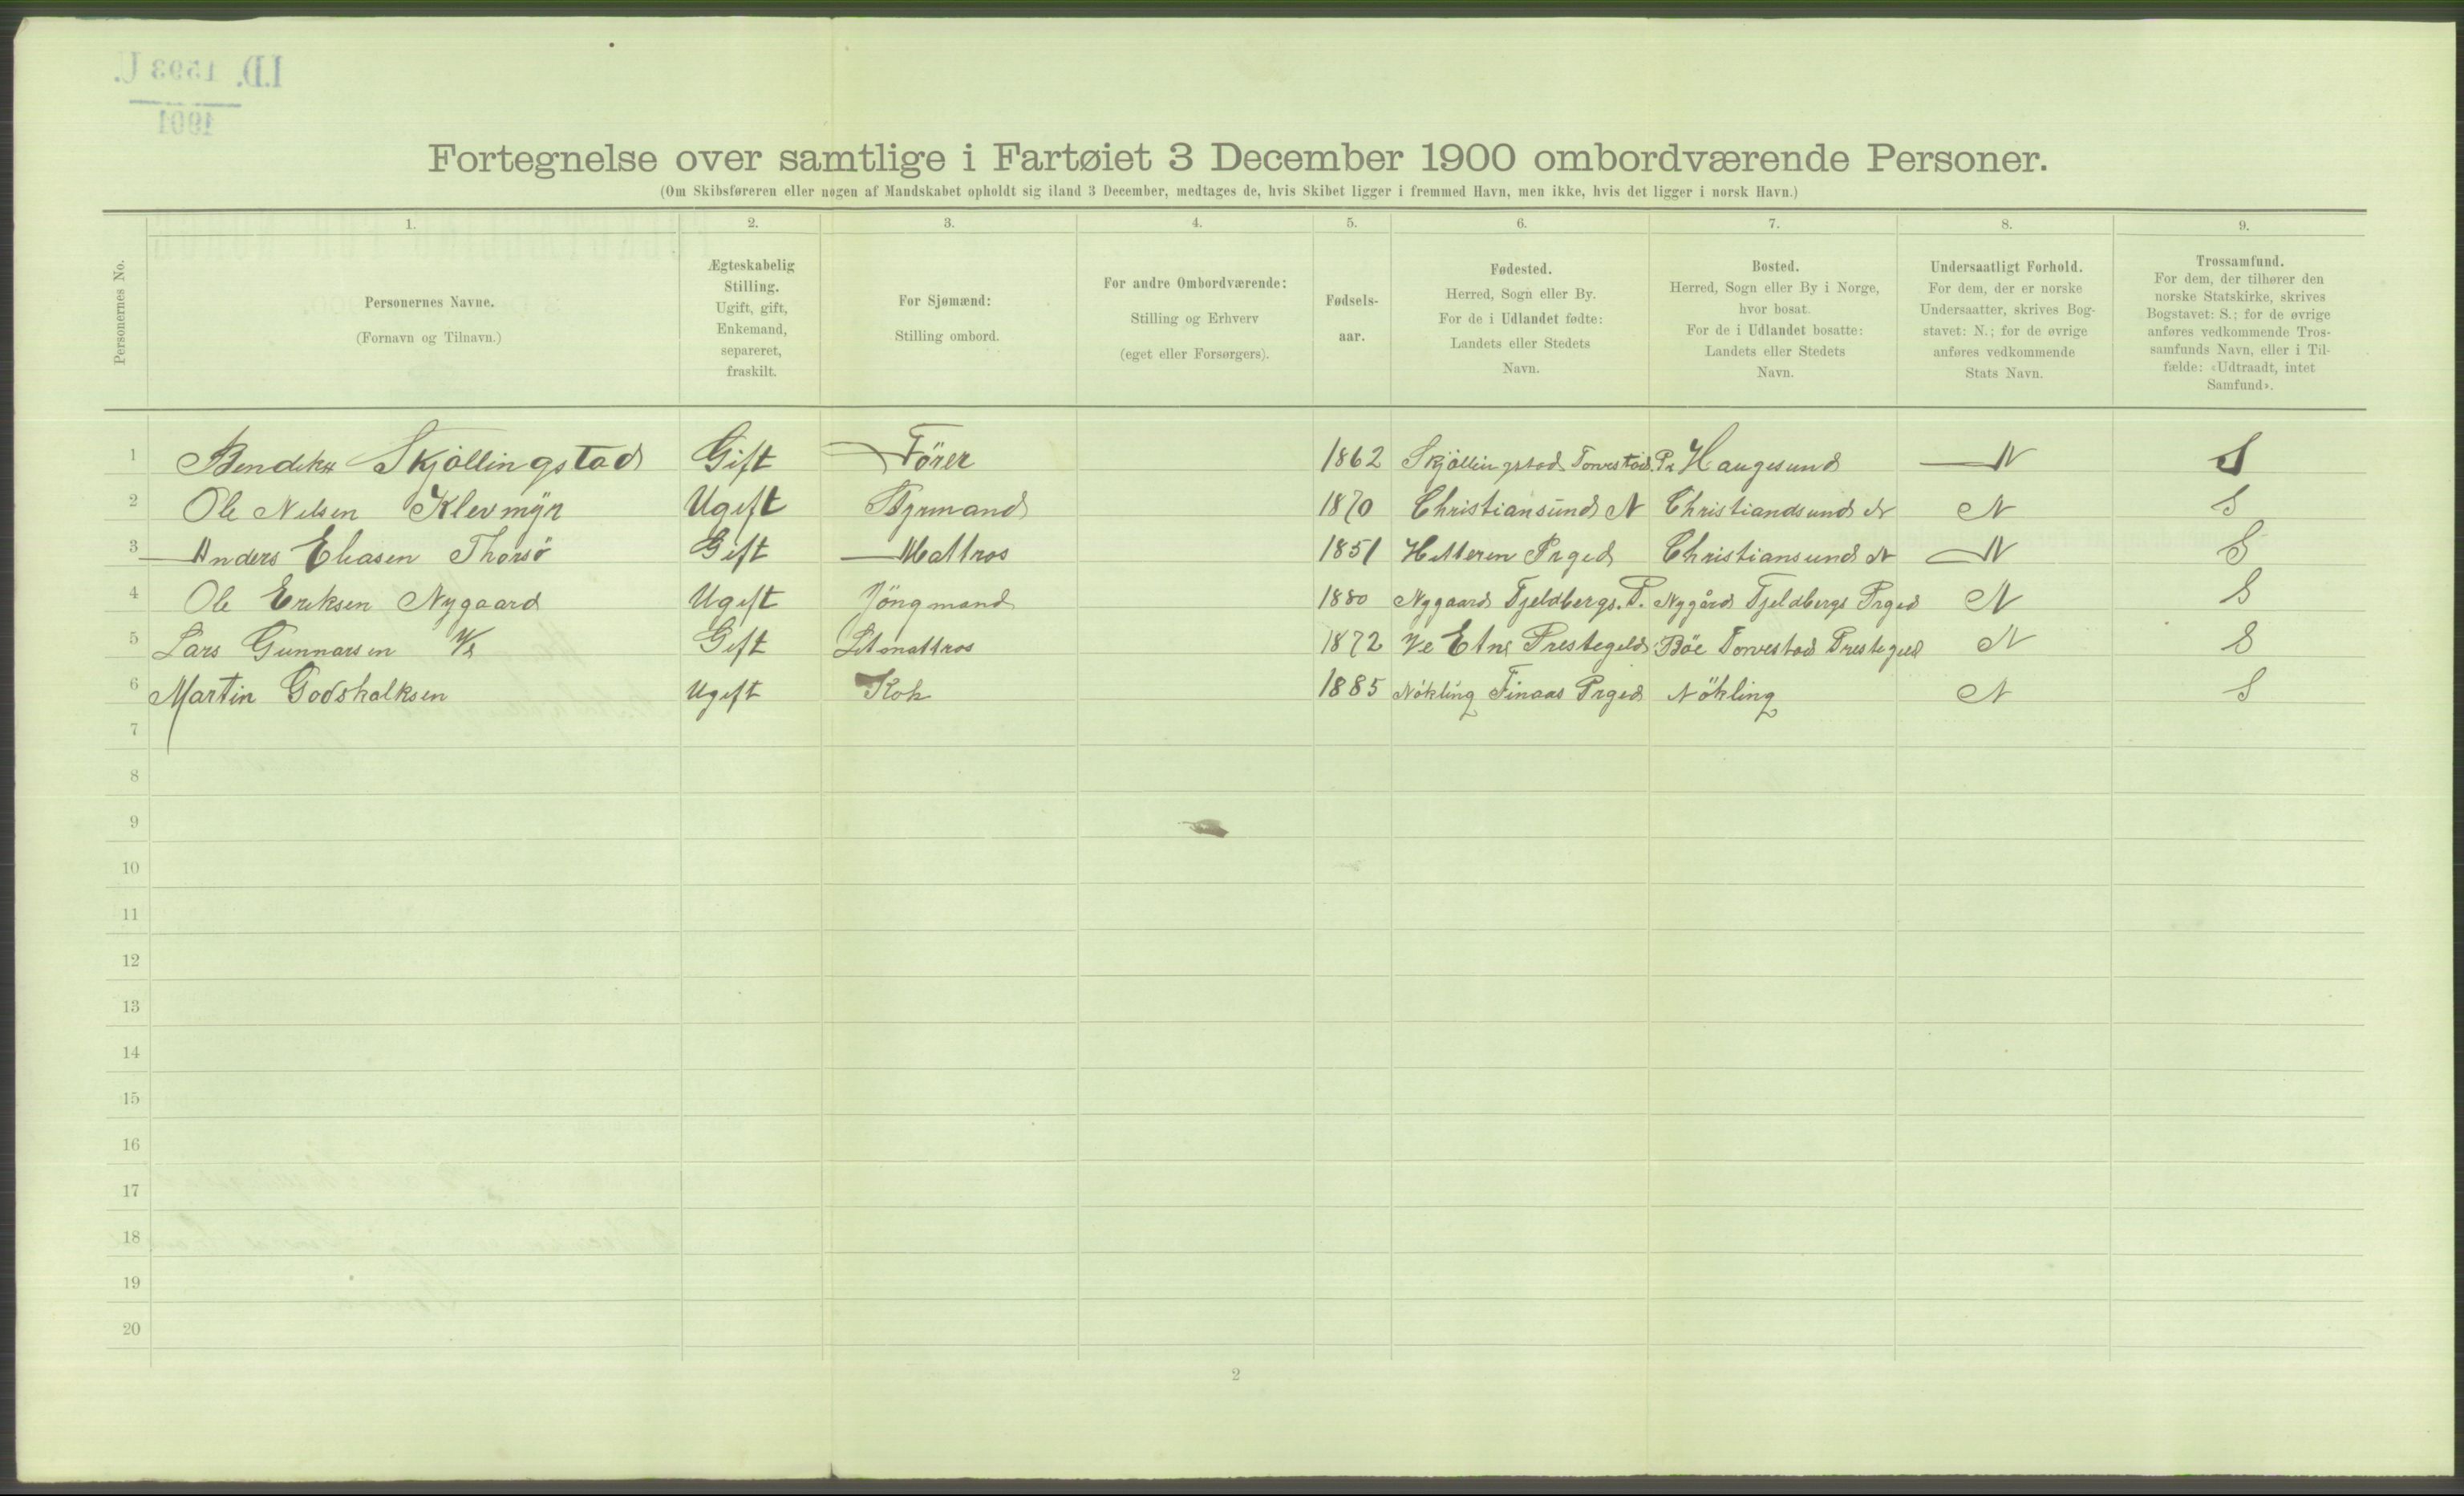 I.D. 1593 U.
1901
Fortegnelse over samtlige i Fartøiet 3 December 1900 ombordværende Personer.
(Om Skibsføreren eller nogen af Mandskabet opholdt sig iland 3 December, medtages de, hvis Skibet ligger i fremmed Havn, men ikke, hvis det ligger i norsk Havn.)
Personernes No.
1.
Personernes Navne.
(Fornavn og Tilnavn.)
2.
Ægteskabelig
Stilling.
Ugift, gift,
Enkemand,
separeret,
fraskilt.
3.
For Sjømænd:
Stilling ombord.
4.
For andre Ombordværende:
Stilling og Erhverv
(eget eller Forsørgers).
5.
Fødsels-
aar.
6.
Fødested.
Herred, Sogn eller By.
For de i Udlandet fødte:
Landets eller Stedets
Navn.
7.
Bosted.
Herred, Sogn eller By i Norge,
hvor bosat.
For de i Udlandet bosatte:
Landets eller Stedets
Navn.
8.
Undersaatligt Forhold.
For dem, der er norske
Undersaatter, skrives Bog-
stavet: N.; for de øvrige
anføres vedkommende
Stats Navn.
9.
Trossamfund.
For dem, der tilhører den
norske Statskirke, skrives
Bogstavet: S.; for de øvrige
anføres vedkommende Tros-
samfunds Navn, eller i Til-
fælde: «Udtraadt, intet
Samfund».
1 Bendikt Skjöllingstad Gift Förer 1862 Skjöllingstad Torvestad Pr Haugesund N S
2 Ole Nilsen Klevmyr Ugift Styrmand 1870 Christiansund N Christiandsund N N S
3 Anders Eliasen Thorsö Gift Mattros 1851 Hitteren Prgjed Christiansund N N S
4 Ole Eriksen Nygaard Ugift Jöngmand 1880 Nygaard Fjeldbergs. P. Nygård Fjeldbergs Prgjed N S
5 Lars Gunnarsen Ve Gift Letmattros 1872 Ve Etne Prestegeld Böe Torvestad Prestegeld N S
6 Martin Godskalksen Ugift Kok 1885 Nökling Finaas Prgjed Nökling N S
7
8
9
10
11
12
13
14
15
16
17
18
19
20
2